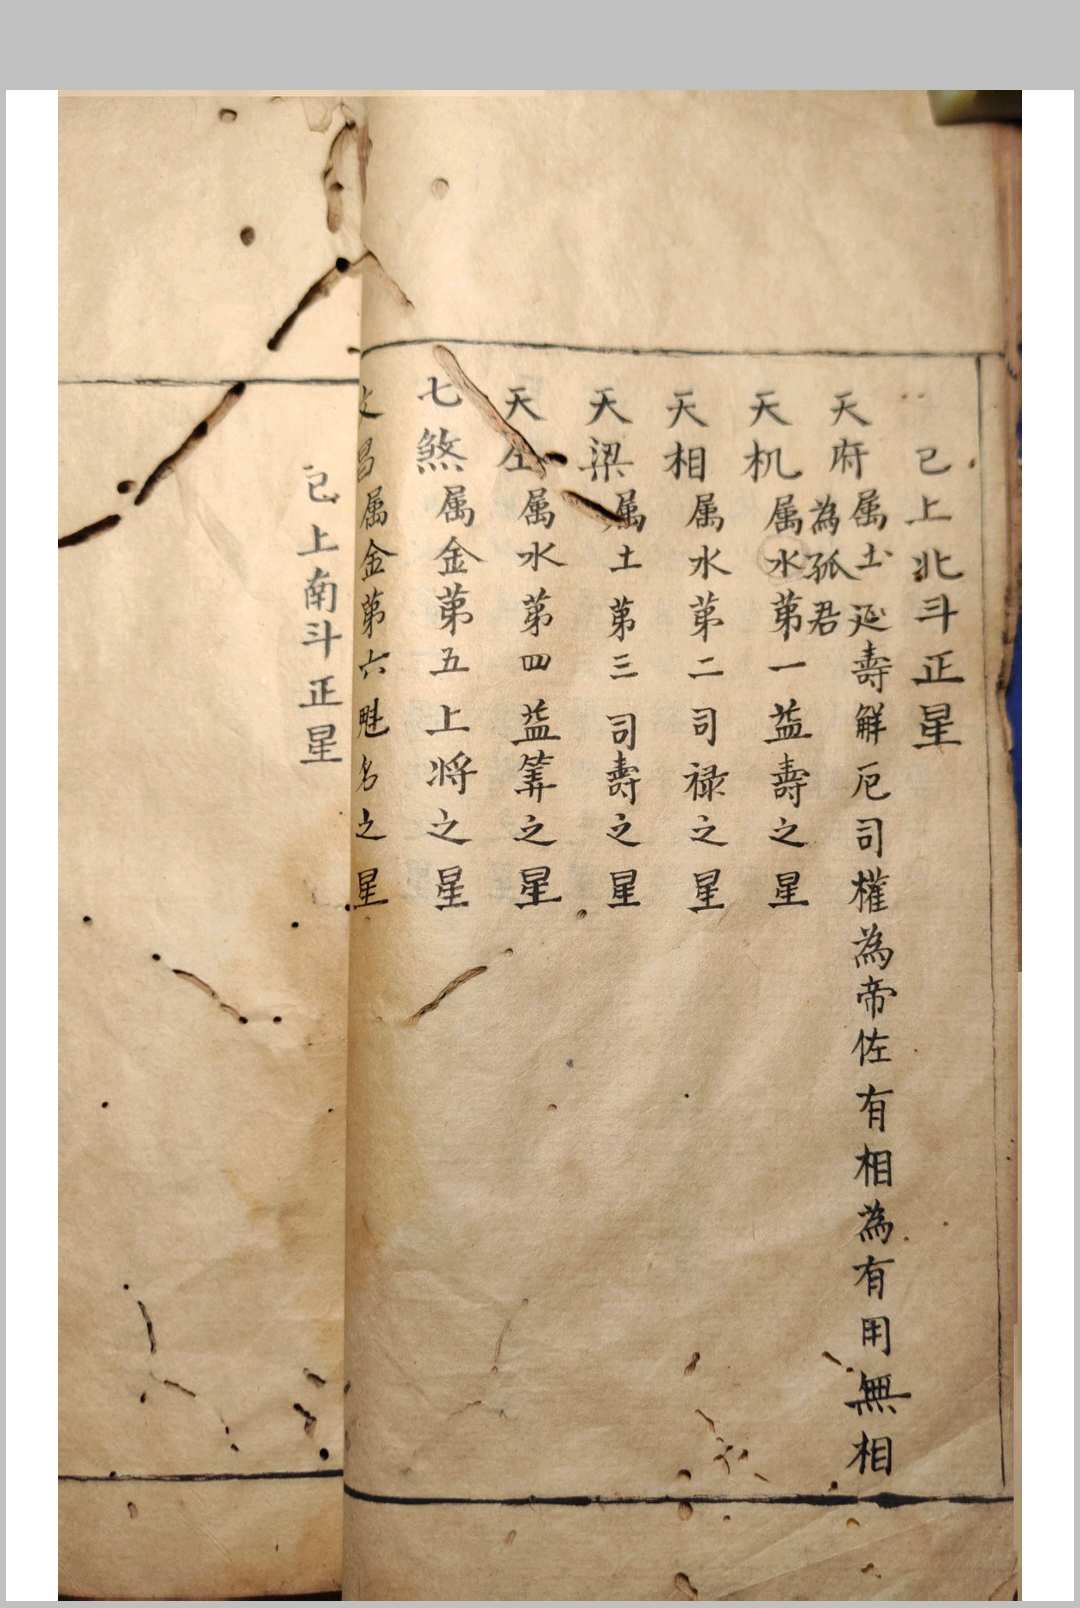 已上北斗正星
天府属土延壽解厄司權為帝佐有相為有用無相
為孤君
天机属水第一益壽之星
天相属水第二司禄之星
天梁属土第三司壽之星
天属水第四益筭之星
七煞属金第五上将之星
文昌属金第六魁名之星
已上南斗正星